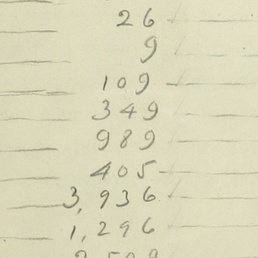 26
9
109
349
989
405
3,936
1,296